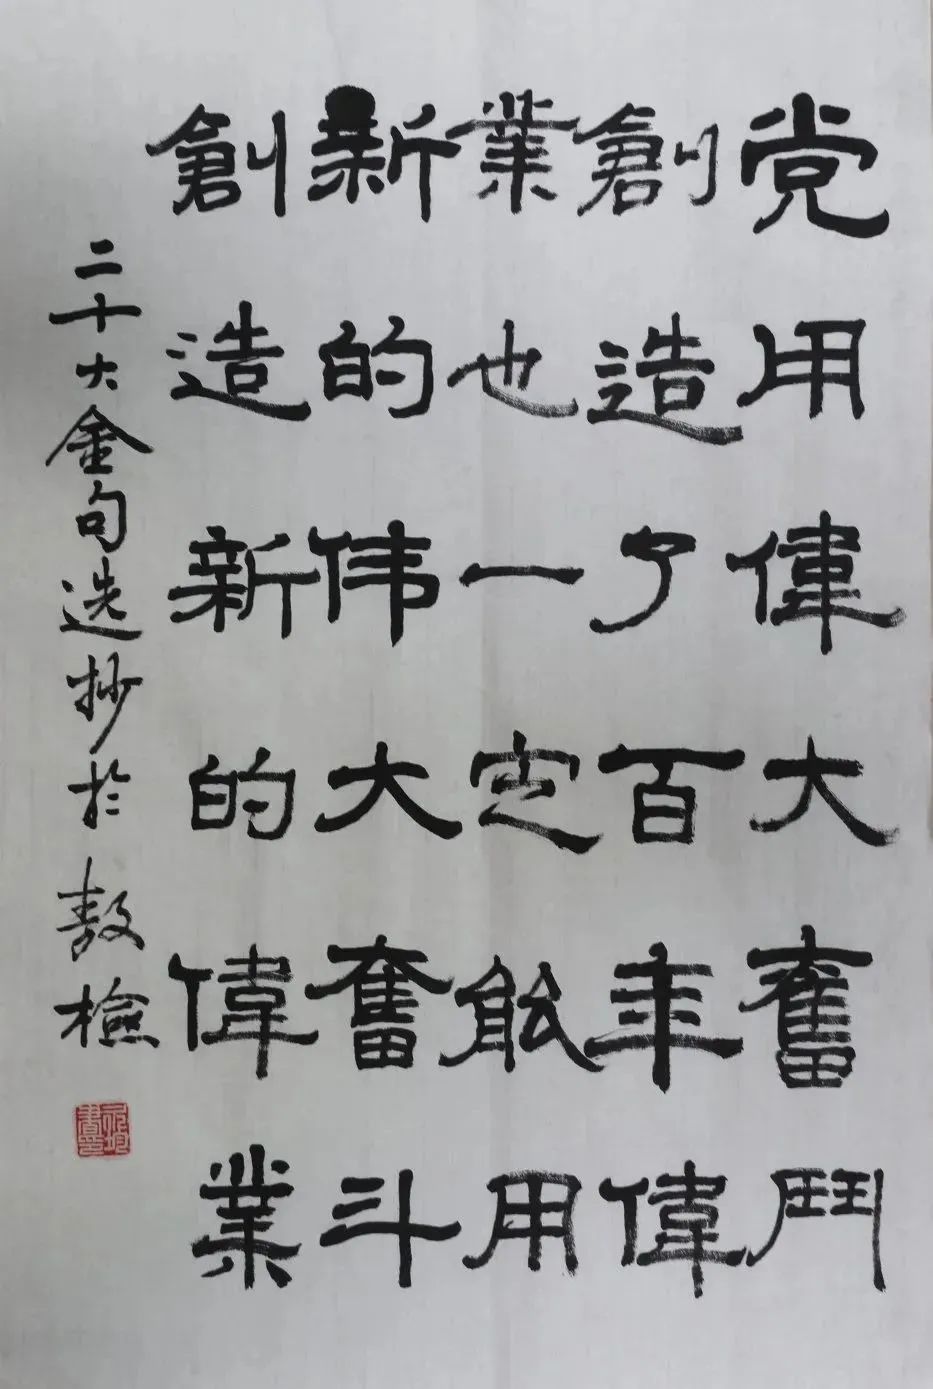 党用偉大奮鬥
創造了百年偉
業也一定能用
新的伟大奮斗
創造新的偉業
二十大金句选抄於敖檢